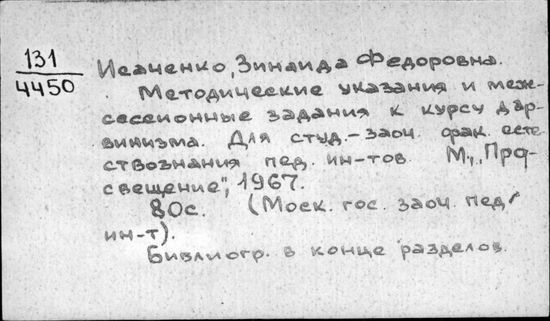 131
4450
Исаченко, Зинаида Федоровна.
Методические указания и меж-
сессионные задания к курсу дар-
винизма. Для студ.-заоч. фак. есте-
ствознания пед. ин-тов. М., „Про-
свещение", 1967.
80с. (Моск. гос. заоч. пед.
ин-т).
Библиогр. в конце разделов.